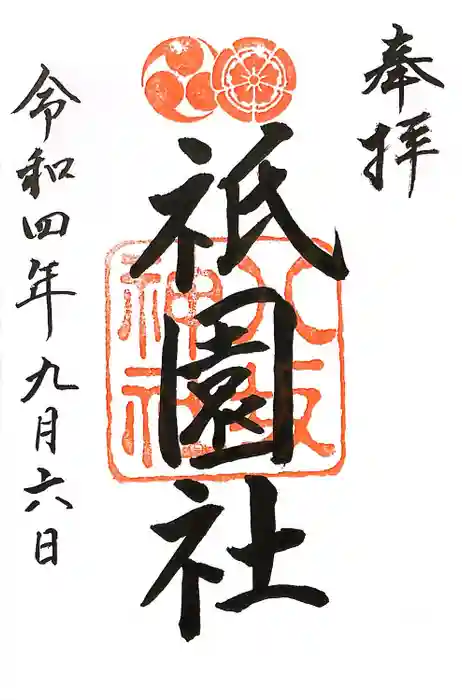 奉拝
祇園社
八坂
神社
令和四年九月六日